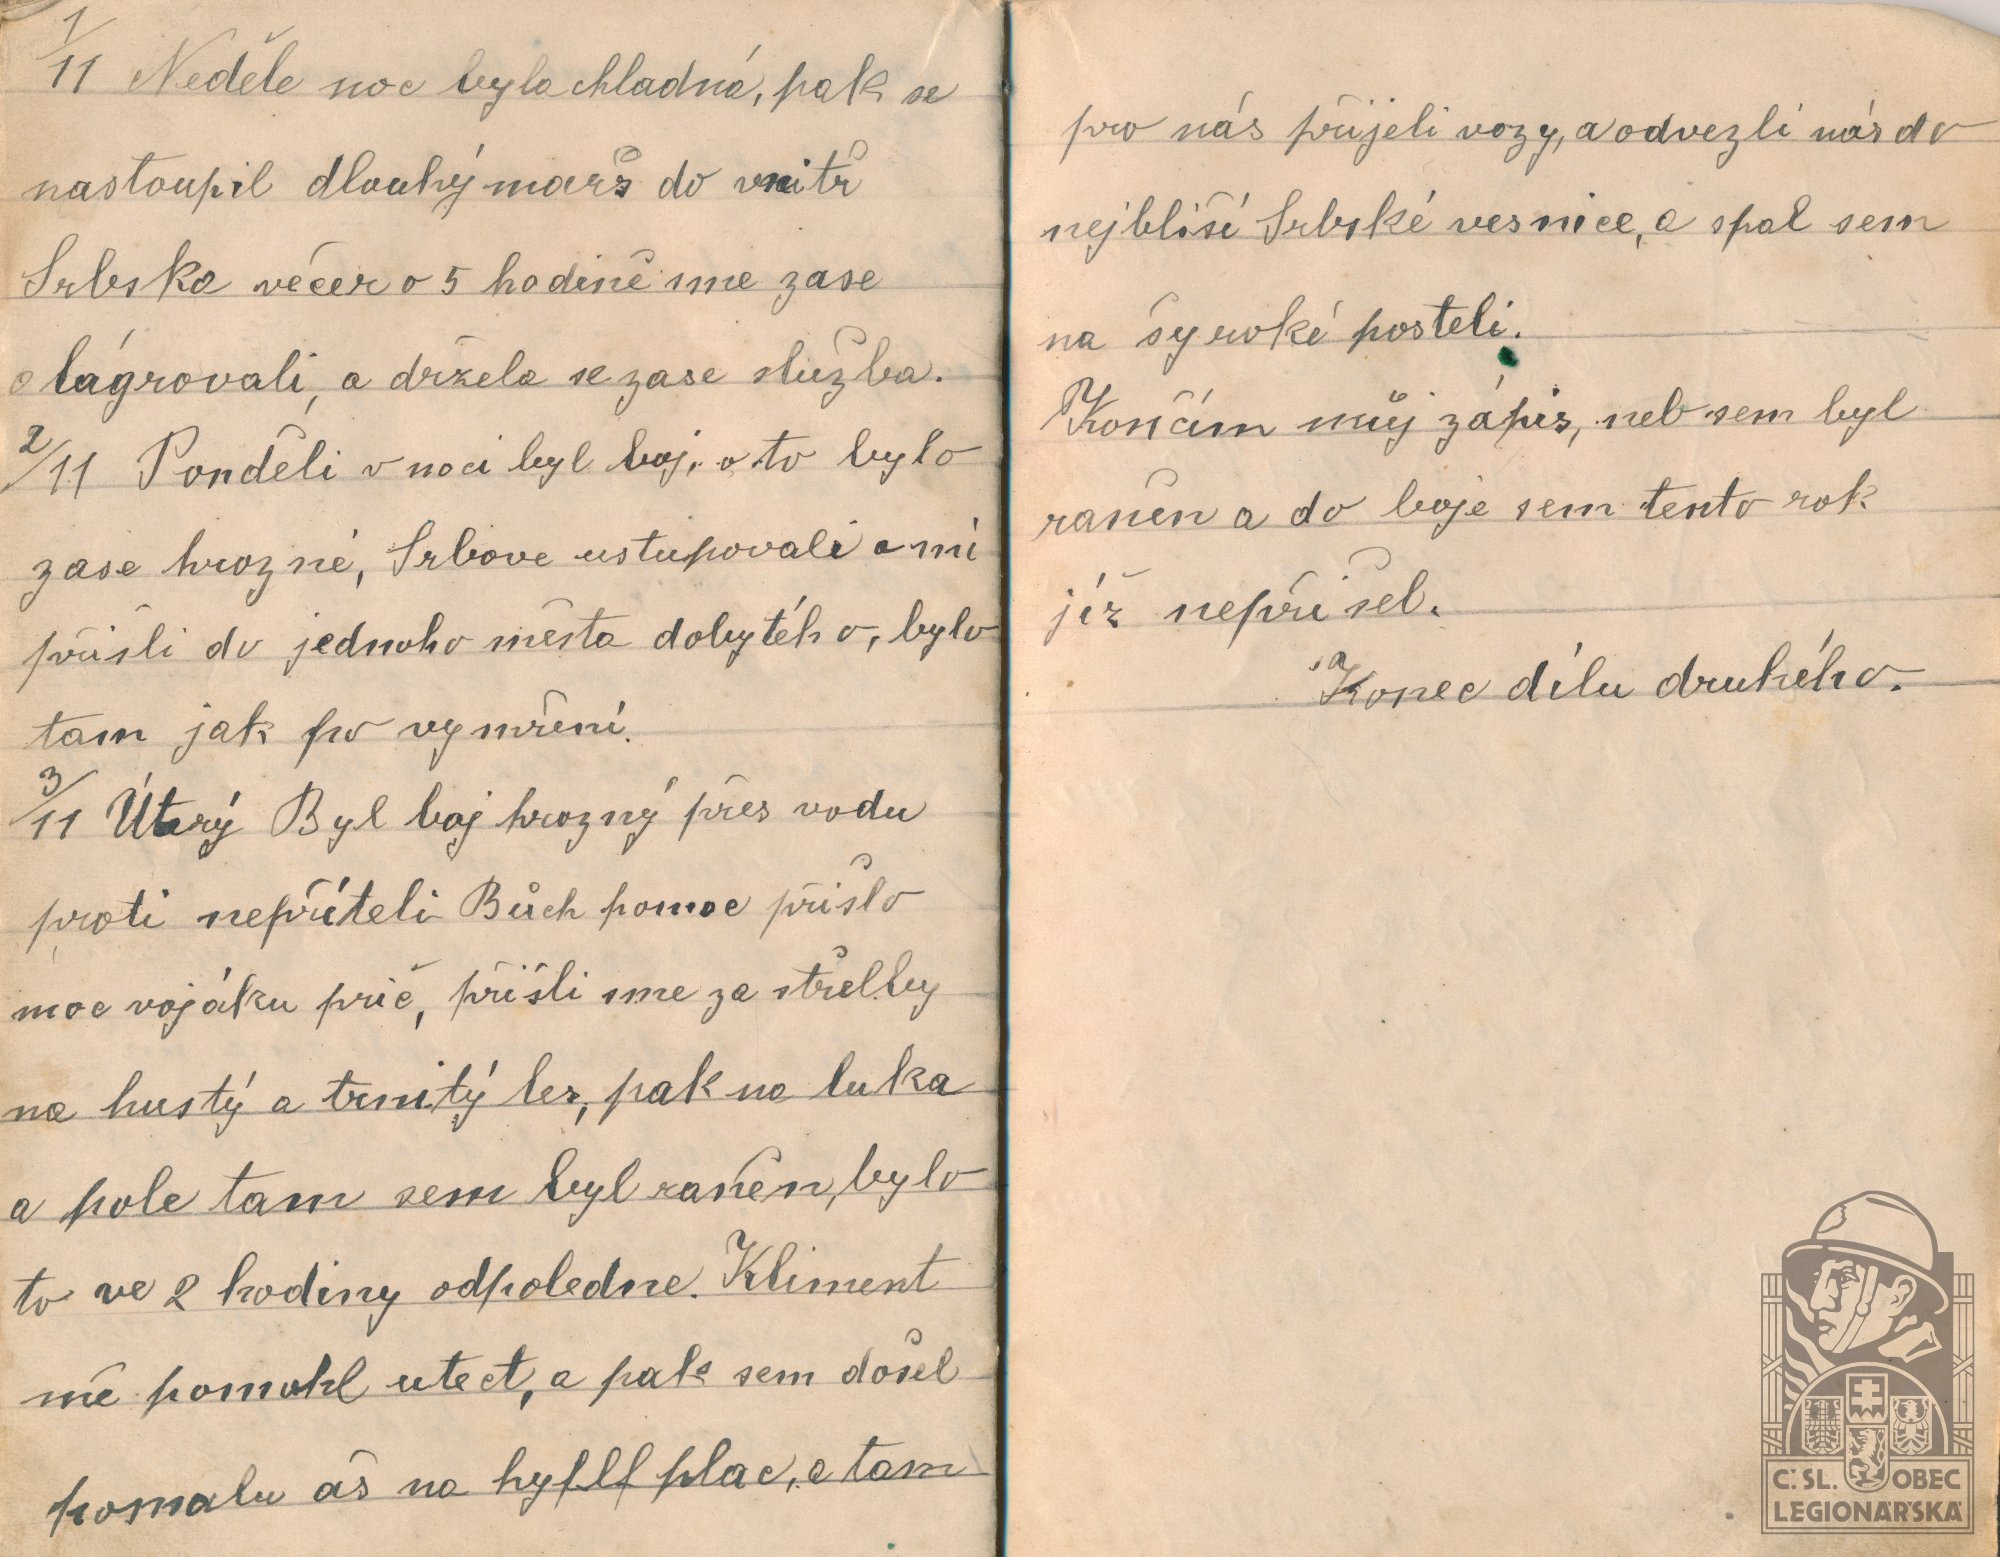 1/11 Neděle noc byla chladná, pak se
nastoupil dlouhý marš do vnitř
Srbska večer o 5 hodině sme zase
olágrovali, a držela se zase služba.
2/11 Ponděli v noci byl boj, a to bylo
zase hrozné, Srbove ustupovali a mi
přišli do jednoho města dobytého, bylo
tam jak po vymření.
3/11 Úterý Byl boj hrozný přes vodu
proti nepříteli Bůch pomoc přišlo
moc vojáku prič, přišli sme za střelby
na hustý a trnitý les, pak na luka
a pole tam sem byl raněn, bylo
to ve 2 hodiny odpoledne. Kliment
mě pomohl utect, a pak sem došel
pomalu aš na hylf plac, a tam
pro nás přijeli vozy, a odvezli nás do
nejbliší Srbské vesnice, a spal sem
na šyroké posteli.
Končím můj zápis, neb sem byl
raněn a do boje sem tento rok
jíž nepřišel.
Konec dílu druhého.
Č.SL. OBEC
LEGIONÁŘSKÁ